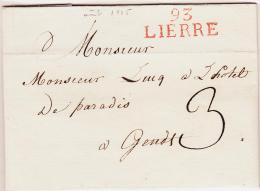 93
LIERRE
Monsieur
Monsieur Lucq à L'hotel
De paradis
à Gendt
3